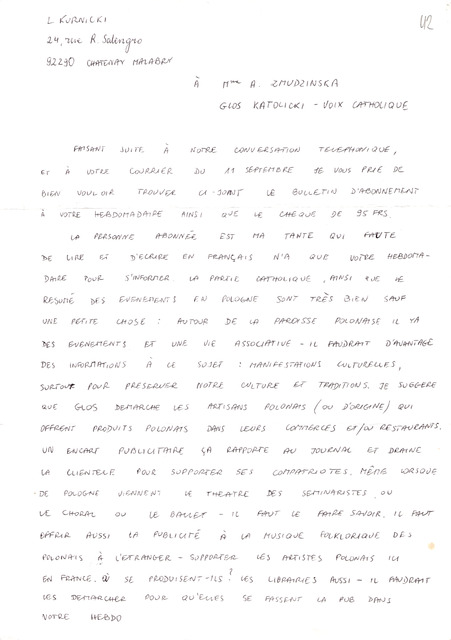 L KURNICKI
42
24, rue R. Salengro
92290 CHATENAY MALABRY
À Mme A. ZMUDZINSKA
GLOS KATOLICKI - VOIX CATHOLIQUE
FAISANT SUITE À NOTRE CONVERSATION TELEPHONIQUE,
ET À VOTRE COURRIER DU 11 SEPTEMBRE JE VOUS PRIE DE
BIEN VOULOIR TROUVER CI-JOINT LE BULLETIN D'ABONNEMENT
À VOTRE HEBDOMADAIRE AINSI QUE LE CHEQUE DE 95 FRS.
LA PERSONNE ABONNÉE EST MA TANTE QUI FAUTE
DE LIRE ET D'ECRIRE EN FRANÇAIS N'A QUE VOTRE HEBDOMA-
DAIRE POUR S'INFORMER LA PARTIE CATHOLIQUE, AINSI QUE LE
RESUMÉ DES EVENEMENTS EN POLOGNE SONT TRÈS BIEN SAUF
UNE PETITE CHOSE : AUTOUR DE LA PAROISSE POLONAISE IL YA
DES EVENEMENTS ET UNE VIE ASSOCIATIVE - IL FAUDRAIT D'AVANTAGE
DES INFORMATIONS À CE SUJET : MANIFESTATIONS CULTURELLES,
SURTOUT POUR PRESERVER NOTRE CULTURE ET TRADITIONS. JE SUGGERE
QUE GLOS DEMARCHE LES ARTISANS POLONAIS (OU D'ORIGINE) QUI
OFFRENT PRODUITS POLONAIS DANS LEURS COMMERCES ET/OU RESTAURANTS.
UN ENCART PUBLICITAIRE ÇA RAPPORTE AU JOURNAL ET DRAINE
LA CLIENTELE POUR SUPPORTER SES COMPATRIOTES. MÊME LORSQUE
DE POLOGNE VIENNENT LE THEATRE DES SEMINARISTES OU
LE CHORAL OU LE BALLET - IL FAUT LE FAIRE SAVOIR. IL FAUT
OFFRIR AUSSI LA PUBLICITÉ À LA MUSIQUE FOLKLORIQUE DES
POLONAIS À L'ETRANGER - SUPPORTER LES ARTISTES POLONAIS ICI
EN FRANCE. OÙ SE PRODUISENT-ILS? LES LIBRAIRIES AUSSI - IL FAUDRAIT
LES DEMARCHER POUR QU'ELLES SE FASSENT LA PUB DANS
VOTRE HEBDO